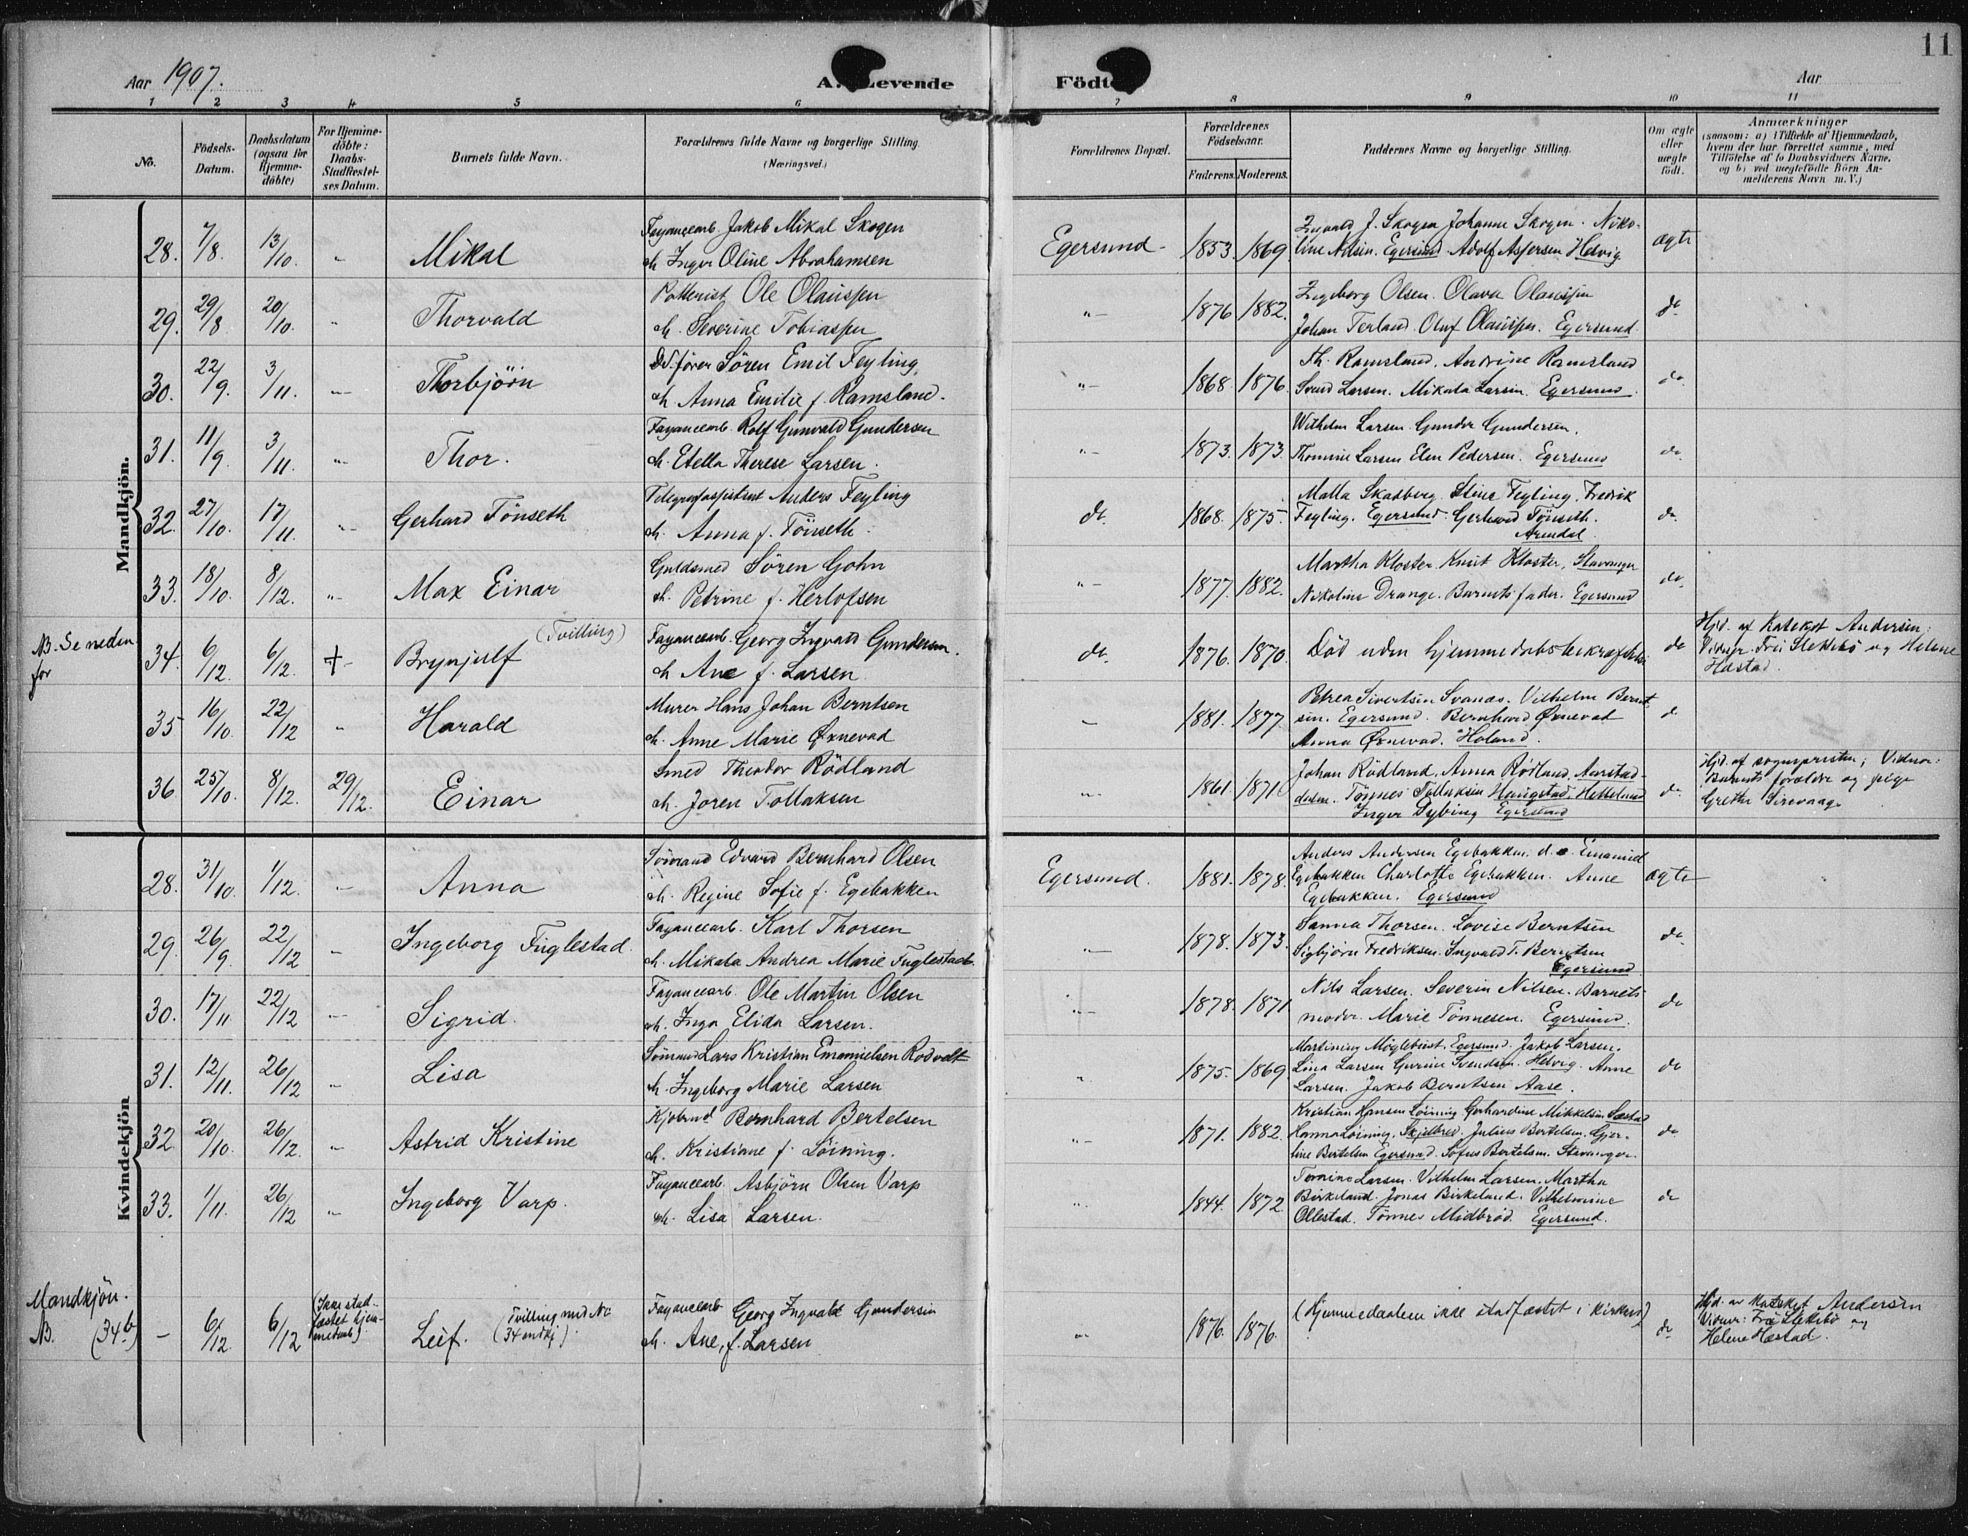 11
Aar 1907.
A. Levende
Födte
Aar
1 2 3 4 5 6 7 8 9 10 11
No.
Födsels-
Datum.
Daabsdatum
(ogsaa for
Hjemme-
döbte)
For Hjemme-
döbte:
Daabs-
Stadfæstel-
ses Datum.
Barnets fulde Navn.
Forældrenes fulde Navne og borgerlige Stilling
(Næringsvei.)
Forældrenes Bopæl.
Forældrenes
Födselsaar.
Faderens. Moderens.
Faddernes Navne og borgerlige Stilling.
Om ægte
eller
uægte
födt.
Anmærkninger
(saasom: a) i Tilfælde af Hjemmedaab,
hvem der har forrettet samme, med
Tilföielse af to Daabsvidners Navne.
og b) ved uægtefödte Börn An-
melderens Navn m. V.)
Mandkjön.
28. 7/8. 13/10. " Mikal
Fayancearb. Jakob Mikal Skogen
og Inger Oline Abrahamsen
Egersund - 1853. 1869.
Ingvald J. Skogen Johanne Skogen. Niko-
line Nilsen. Egersund Adolf Asjersen Helvig
ægte
29. 29/8 20/10. " Thorvald
Pottemist Ole Olaussen
h. Severine Tobiassen
"- 1876 1882.
Ingeborg Olsen. Olava Olaussen
Johan Terland. Oluf Olaussen. Egersund.
do
30. 22/9. 3/11. "- Thorbjörn
Ds.fører Søren Emil Feyling,
h. Anna Emilie f. Ramsland.
"- 1868 1876.
Th. Ramsland. Andrine Ramsland
Svend Larsen. Mikala Larsen. Egersund.
do.
31. 11/9. 3/11. "- Thor.
Fayancearb. Rolf Gunvald Gundersen
h. Etella Therese Larsen.
"- 1873. 1873.
Wilhelm Larsen Gunder Gundersen.
Thomine Larsen Elen Pedersen. Egersund
do.
32. 27/10. 17/11. " Gerhard Tönseth
Telegrafassistent Anders Feyling
h. Anna f. Tönseth.
do. 1868. 1875.
Malla Skadberg. Stine Feyling. Fredrik
Feyling. Egersund. Gerhard Tönseth.
Arendal.
do.
33. 18/10. 8/12. "- Max Einar
Guldsmed Sören Gohn
h. Petrine f. Herlofsen
"- 1877. 1882.
Martha Kloster. Knut Kloster, Stavanger
Nikoline Drange. Barnets fader. Egersund
do.
NB. Se neden
for
34. 6/12. 6/12. +- Brynjulf (Tvilling)
Fayancearb. Georg Ingvald Gundersen.
h Ane f. Larsen.
do. 1876. 1870.
Död uden hjemmedabsbekræftelse
do
Hjd. af Kateket Andersen;
Vidner: Frk Slettebø og Helene
Hæstad.
35 16/10. 22/12 " Harald
Murer Hans Johan Berntsen
h. Anne Marie Øxnevad
" 1881. 1877
Petrea Sivertsen Svanæs. Vilhelm Bernt-
sen. Egersund. Bernhard Øxnevad
Anna Øxnevad. Höland.
do
36. 25/10. 8/12. 29/12. Einar
Smed Theodor Rödland
h. Joren Tollaksen
" 1861. 1871.
Johan Rödland. Anna Rödland. Aarstad-
dalen. Tönnes Tollaksen Haugstad. Hetland
Inger Dybing Egersund
do.
Hjd. af sognepresten; Vidner:
Barnets forældre og pige
Grethe Sirevaag
Kvindekjön
28. 31/10. 1/12. " Anna
Sömand Edvard Bernhard Olsen
h. Regine Sofie f. Egebakken
Egersund. 1881. 1878.
Anders Andersen Egebakken. d. e. Emanuel
Egebakken Charlotte Egebakken. Anne
Egebakken. Egersund
ægte
29. 26/9. 22/12 " Ingeborg Fuglestad.
Fayancearb. Karl Thorsen
h. Mikala Andrea Marie Fuglestad.
"- 1878. 1873.
Sanna Thorsen. Lovise Berntsen
Sigbjörn Fredriksen. Ingvald T. Berntsen
Egersund
do
30. 17/11 22/12 " Sigrid.
Fayancearb. Ole Martin Olsen
h. Inga Elida Larsen.
"- 1878. 1871.
Nils Larsen. Severin Nilsen. Barnets
moder. Marie Tönnesen. Egersund.
do
31. 12/11. 26/12 " Lisa
Sömand Lars Kristian Emanielsen Rodvelt
h. Ingeborg Marie Larsen
" 1875. 1869
Martining Möglebust. Egersund. Jakob Larsen.
Lina Larsen Gurine Svendsen. Helvig. Anne
Larsen. Jakob Berntsen Aase.
do
32 20/10. 26/12. " Astrid Kristine
Kjøbmd Bernhard Bertelsen
h. Kristiane f. Löining.
"- 1871. 1882.
Kristian Hansen Löining Gerhardine Mikkelsen Sæstad
Hanna Löining. Skjelbred. Julius Bertelsen. Gjer-
tine Bertelsen Egersund. Sofus Bertelsen. Stavanger.
do
33. 1/11. 26/12 " Ingeborg Varp.
Fayancearb. Asbjörn Olsen Varp
h. Lisa Larsen.
" 1844. 1872
Tomine Larsen. Vilhelm Larsen. Martha
Birkeland. Jonas Birkeland. Vilhelmine
Ollestad. Tönnes Midbrød. Egersund.
do
Mandkjön.
NB. (34b) - 6/12. 6/12
(Ikke stad-
fæstet hjem-
medaab)
Leif. (Tvilling med No
34 mdkj).
Fayancearb Georg Ingvald Gundersen
h. Ane, f. Larsen
"- 1876. 1876.
(Hjemmedaaben ikke stadfæstet i kirken)
do
Hjd. av Kateket Andersen
Vidner: Frk Slettebø og
Helene Hæstad.